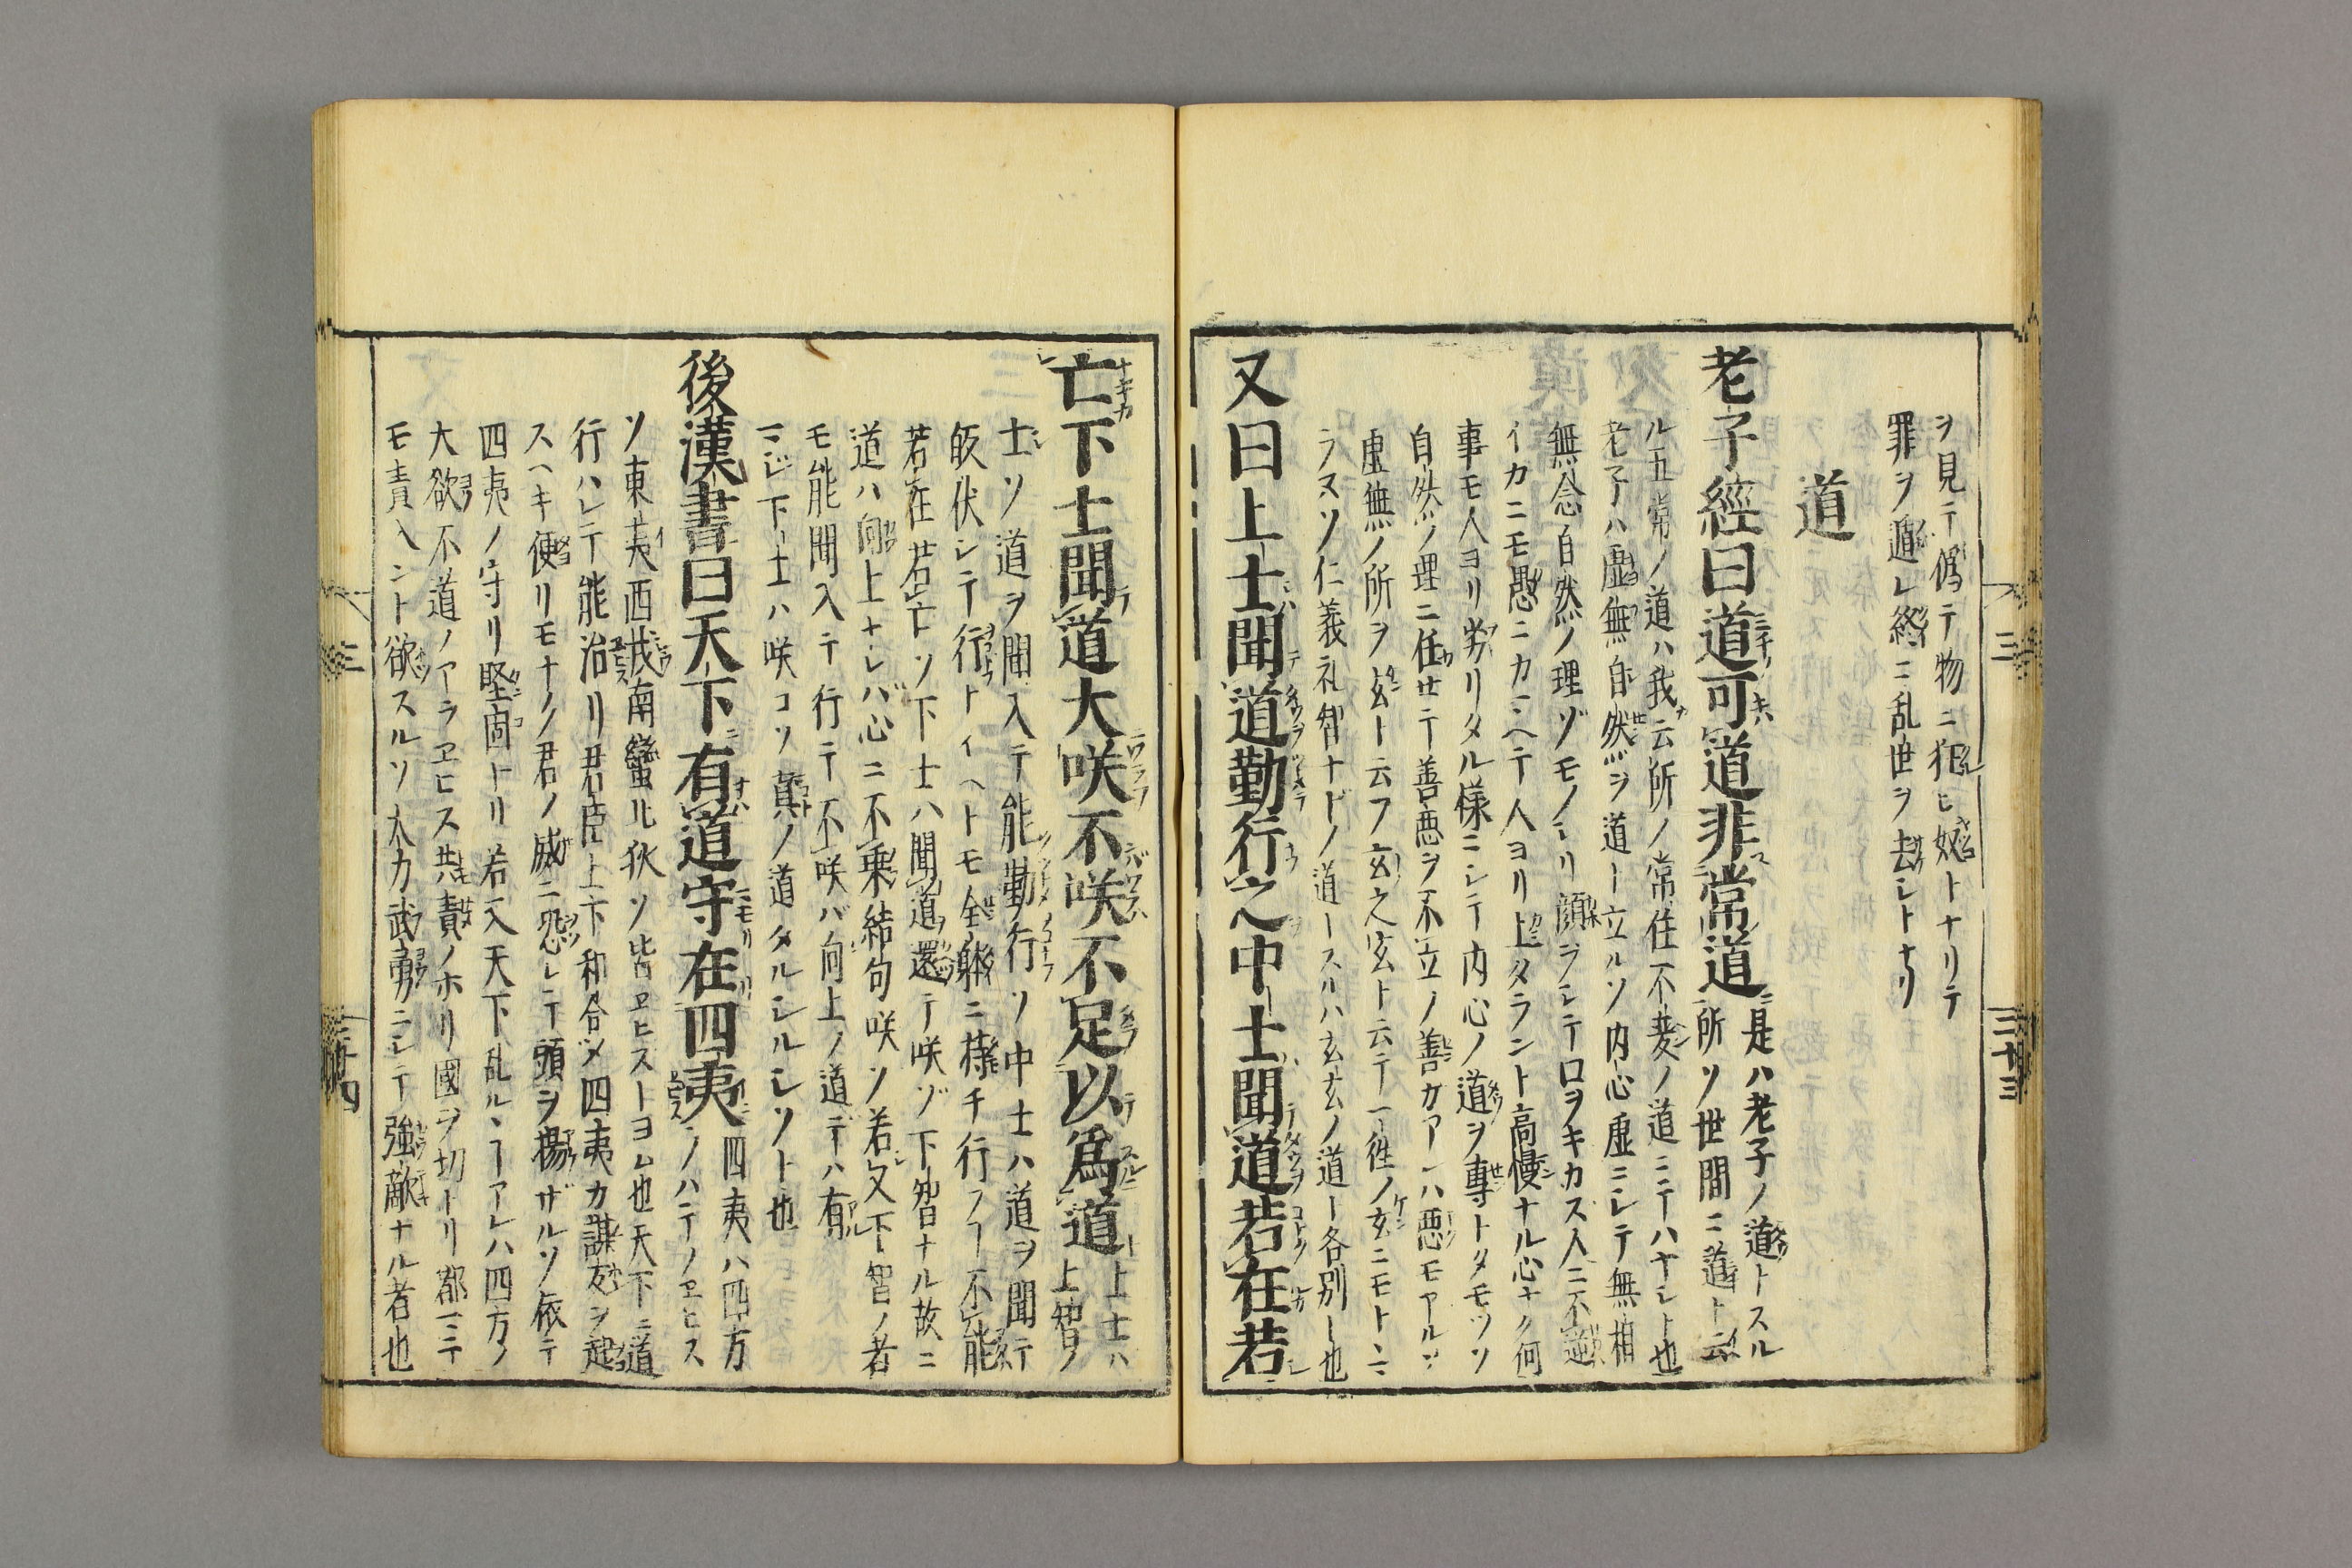 ヲ見テ偽テ物ニ狂ヒ妖トナリテ
罪ヲ遁レ終ニ乱世ヲ去シトナリ
道
老子經曰道可道非常道
是ハ老子ノ道トスル
所ソ世間ニ道ト云
ル五常ノ道ハ我云所ノ常住不変ノ道ニテハナシト也
老子ハ虚無自然ヲ道ト立ルソ内心虚ニシテ無相
無念自然ノ理ゾモノシリ顔ヲシテ口ヲキカス人ニ不逆
イカニモ愚ニカマヘテ人ヨリ上タラント高慢ナル心ナク何
事モ人ヨリ劣リタル様ニシテ内心ノ道ヲ専トタモツソ
自然ノ理ニ任セテ善悪ヲ不立ノ善カアレハ悪モアルソ
虚無ノ所ヲ玄ト云フ玄之玄ト云テ一往ノ玄ニモトマ
ラヌソ仁義礼智ナドノ道トスルハ玄玄ノ道ト各別ト也
又曰上士聞道勤行之中士聞道若在若
亡下士聞道大咲不咲不足以爲道
上士ハ
上智ノ
士ソ道ヲ聞入テ能勤行ソ中士ハ道ヲ聞テ
皈伏シテ行トイヘトモ全躰ニ持チ行フヿ不能
若在若亡ソ下士ハ聞道還テ咲ゾ下智ナル故ニ
道ハ向上ナレバ心ニ不乗結句咲ソ若又下智ノ者
モ能聞入テ行テ不咲バ向上ノ道デハ有
マジ下士ハ咲コソ真ノ道タルシルシソト也
後漢書曰天下有道守在四夷
四夷ハ四方
ノハテノヱヒス
ソ東夷西戎南蠻北狄ソ皆ヱヒストヨム也天下ニ道
行ハレテ能治リ君臣上下和合メ四夷カ謀叛ヲ起
スヘキ便リモナク君ノ威ニ恐レテ頭ヲ揚ザルソ依テ
四夷ノ守リ堅固トリ若又天下乱ルヽヿアレハ四方ノ
大欲不道ノアラヱヒス共責ノホリ國ヲ切トリ都マテ
モ責入ント欲スルソ大力武勇ニシテ強敵ナル者也
三
三十三
三